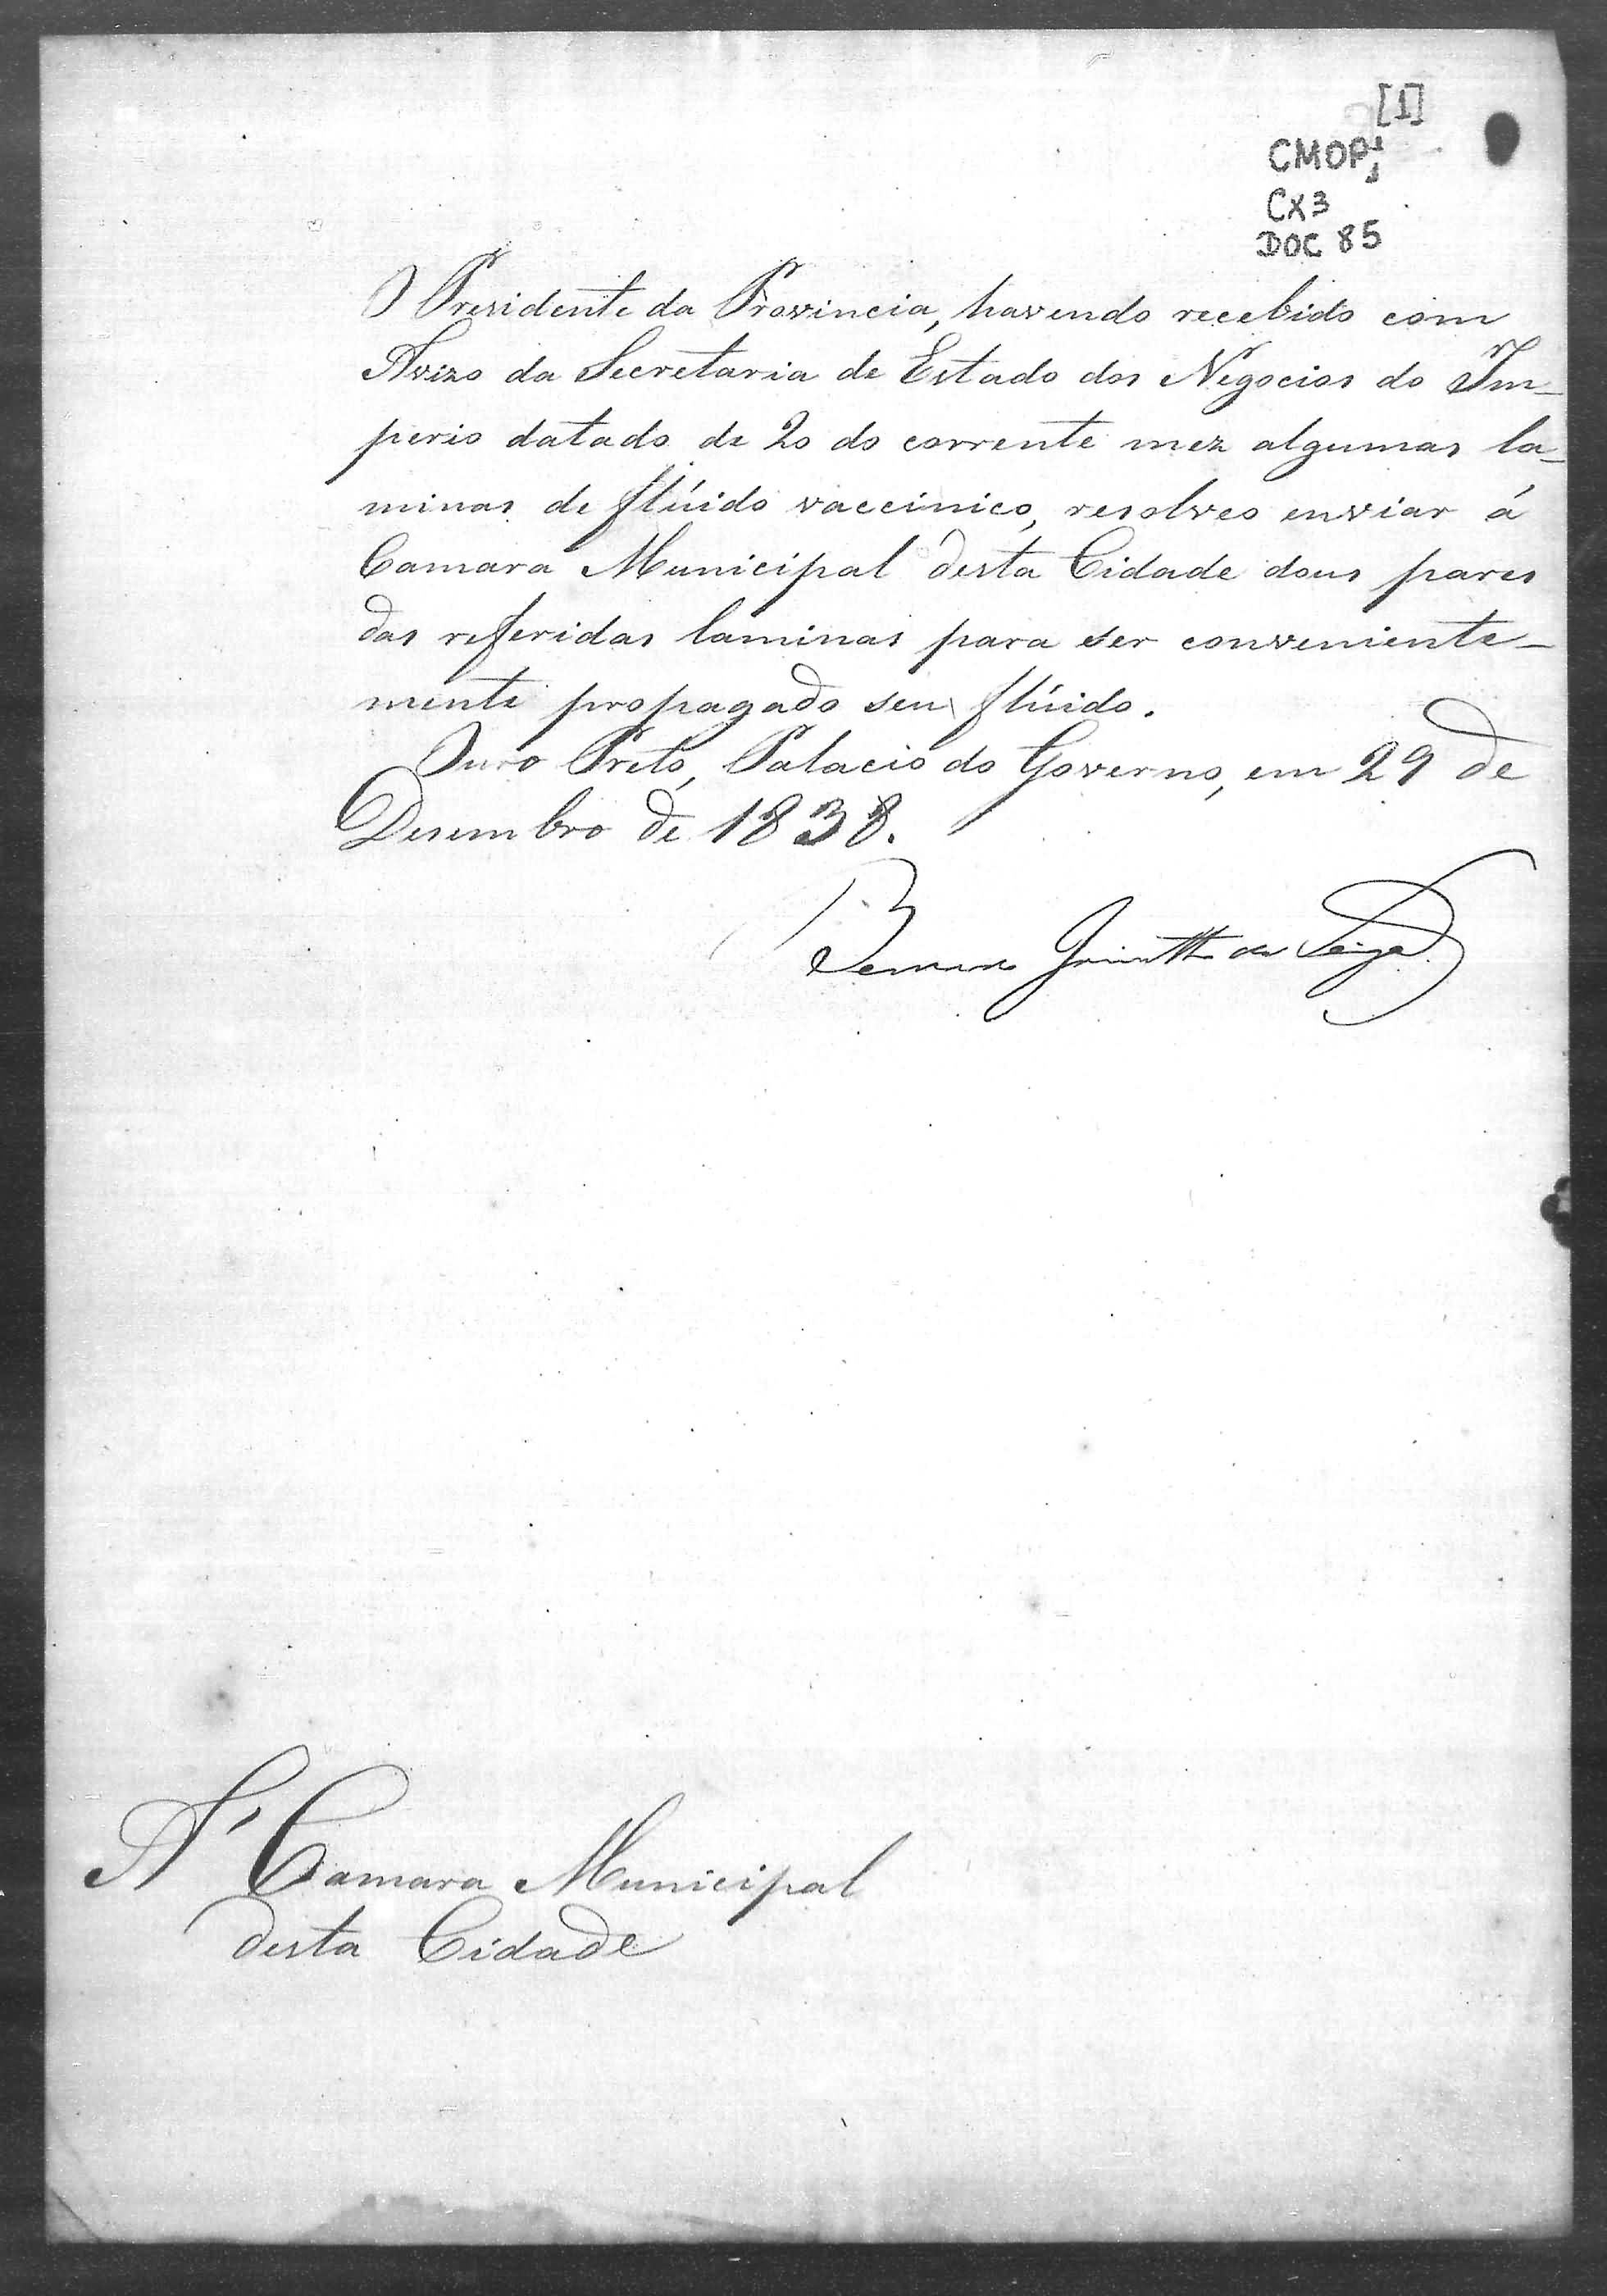 [1]
CMOP1
CX3
DOC 85
O Presidente da Provincia, havendo recebido com
Avizo da Secretaria de Estado dos Negocios do Im-
perio datado de 20 do corrente mez algumas la-
minas de flúido vaccinico, resolveo enviar á
Camara Municipal desta Cidade dous pares
das referidas laminas para ser conveniente-
mente propagado seu flúido.
Ouro Preto, Palacio do Governo, em 29 de
Desembro de 1838.
Bernardo Jacintho da Veiga
A' Camara Municipal
desta Cidade